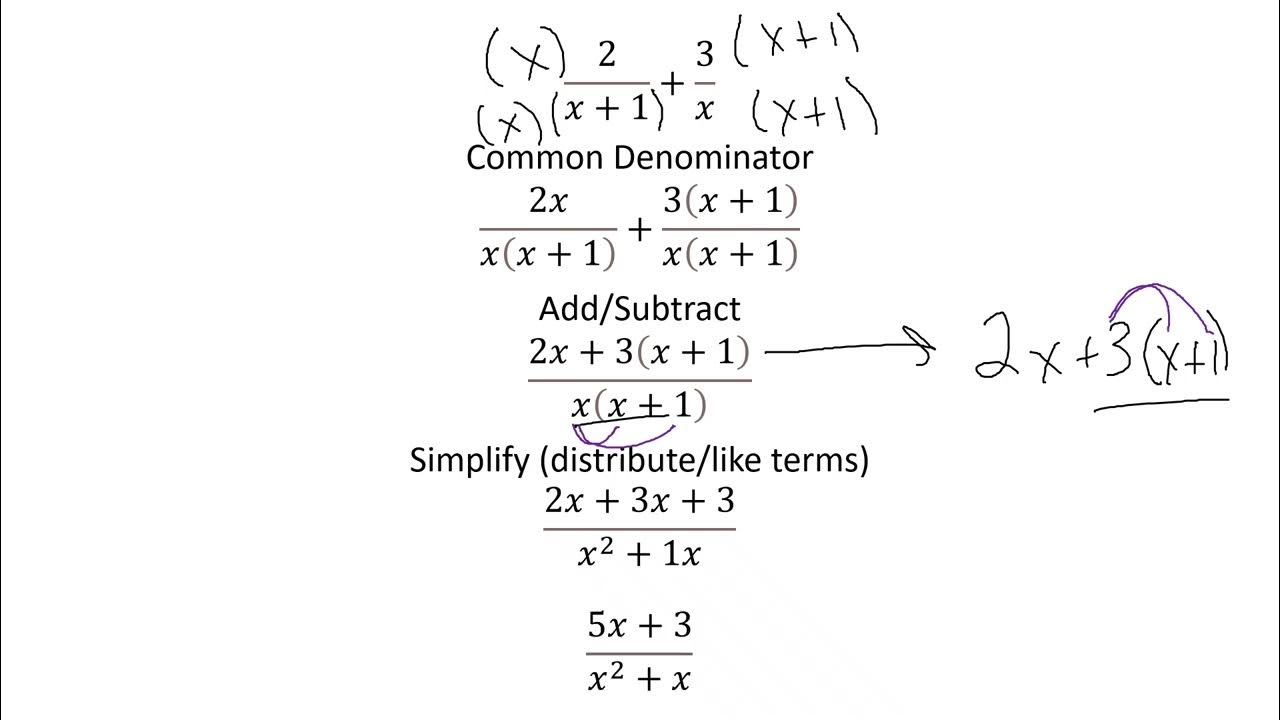 (x) 2/(x + 1) + 3/x (x+1)
(x) (x+1)
Common Denominator
2x/x(x + 1) + 3(x + 1)/x(x + 1)
Add/Subtract
2x + 3(x + 1)/x(x + 1) → 2x+3(x+1)
Simplify (distribute/like terms)
2x + 3x + 3/x² + 1x
5x + 3/x² + x